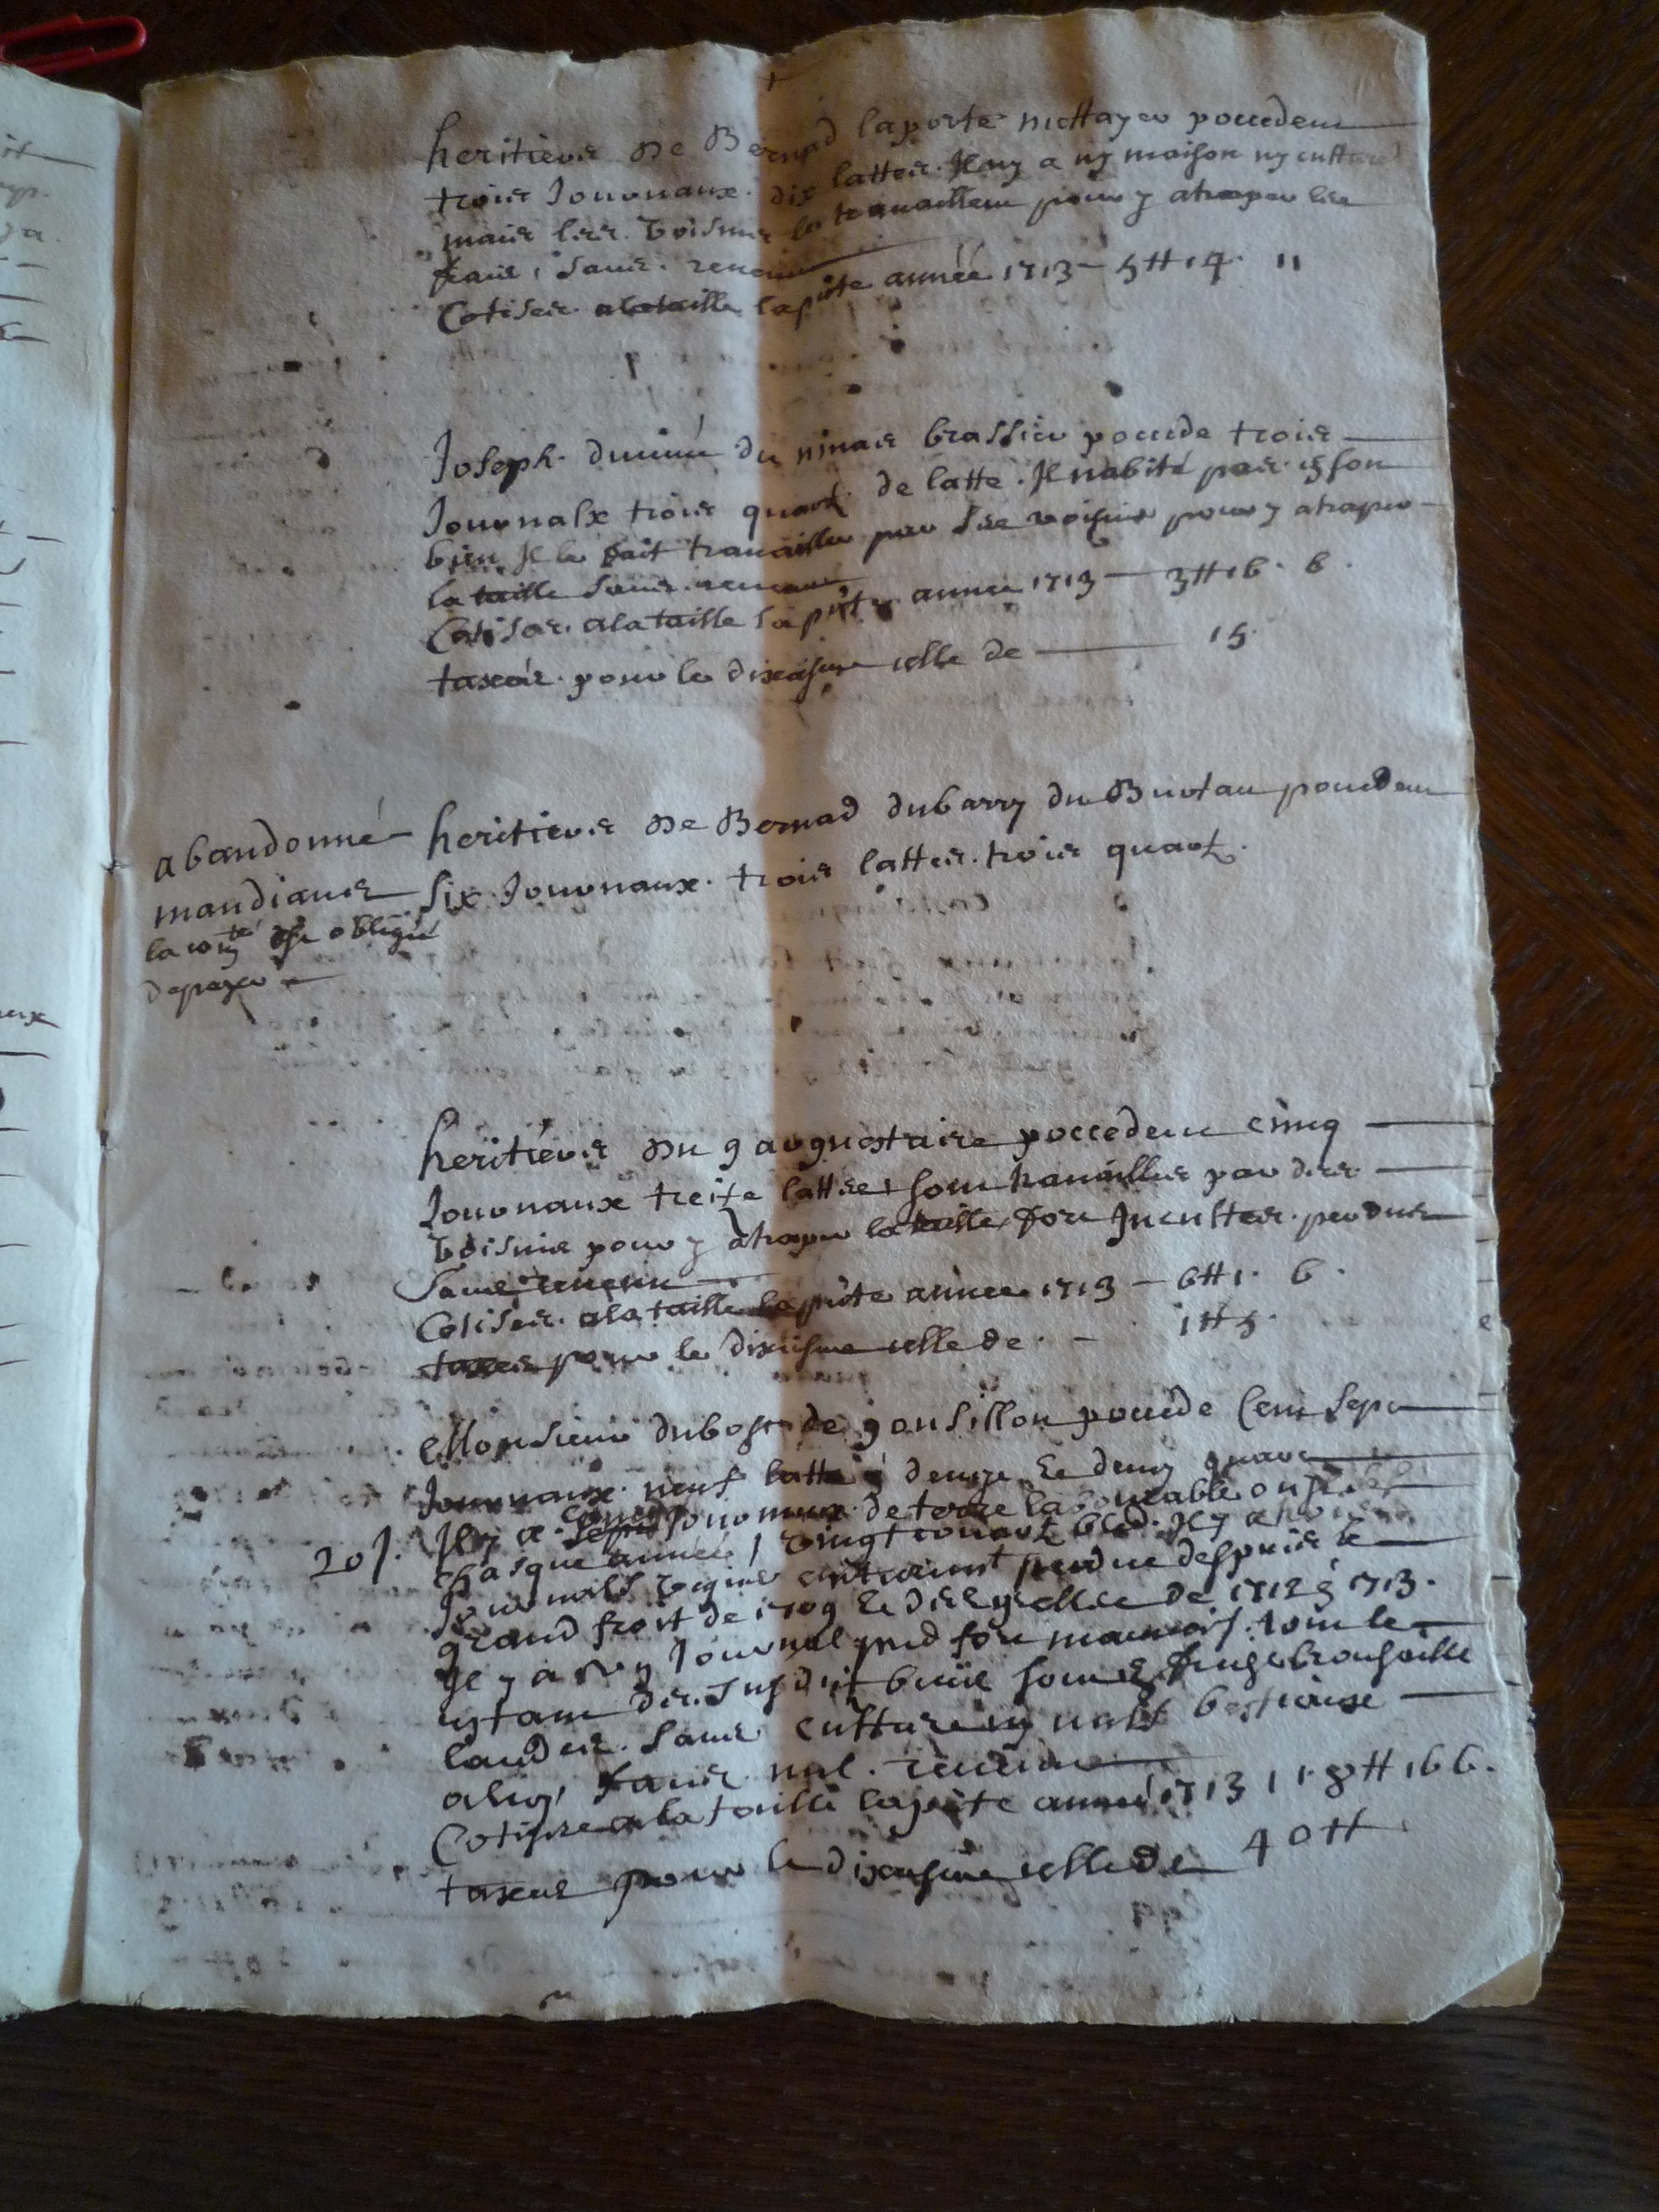 heritiers de Bernad laporte mettayer poccedent
trois Journaux dix lattes. Il ny a ny maison ny culture
mais les voisins le travaillent pour y atraper les
sans revenu
Cotises a la taille la pnte année 1713 - 5tt 14 11
Joseph du ninais brassier poccede trois
Journalx trois quart de latte. Il nabite pas en son
bien Il le fait travailler par les voisins pour y atraper
la taille sans revenu
Cotises a la taille la pnte annee 1713 - 3tt 16 6
taxes pour le dixiesme celle de 15
abandonné
mandians
la comte est obligée
de payer
heritiers de Bernad dubarry du Burtau poccedent
six Journaux trois lattes trois quart
heritiers du gargnostaire poccedent cinq
Journaux treize lattes sont travailles par des
voisins pour y atraper la taille fort Incultes perdues
sans revenu
Cotises a la taille la pnte annee 1713 - 6tt 1 6
taxes pour le dixiesme celle de - 1tt 5
Monsieur dubosc de gonsillon poccede Cent sept
Journaux neuf latte & demye & demy quart
20 J. Il y a Journaux de terre labourable on
chasque année vingt bled. Il y a
Journals vignes entierement perdue despuis le
grand froit de 1709 & des gellée de 1712 & 1713.
Il y a un Journal pred fort mauvais. tout le
restant des susdit biens sont brousaille
landes sans culture ny nulx bestiaux
sans nul revenu
Cotisse a la taille la pnte année 1713 118tt 16 6.
taxes pour le dixiesme celle de 40tt